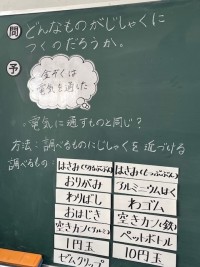 問 どんなものがじしゃくに
つくのだろうか。
予
金ぞくは
電気を通した
電気に通すものと同じ?
方法：調べるものにじしゃくを近づける
調べるもの：
はさみ(きるぶぶん)
おりがみ
わりばし
おはじき
空きカン(アルミ)
1円玉
ゼムクリップ
はさみ(もつぶぶん)
アルミニウムはく
わゴム
空きカン(スチール)
ペットボトル
10円玉